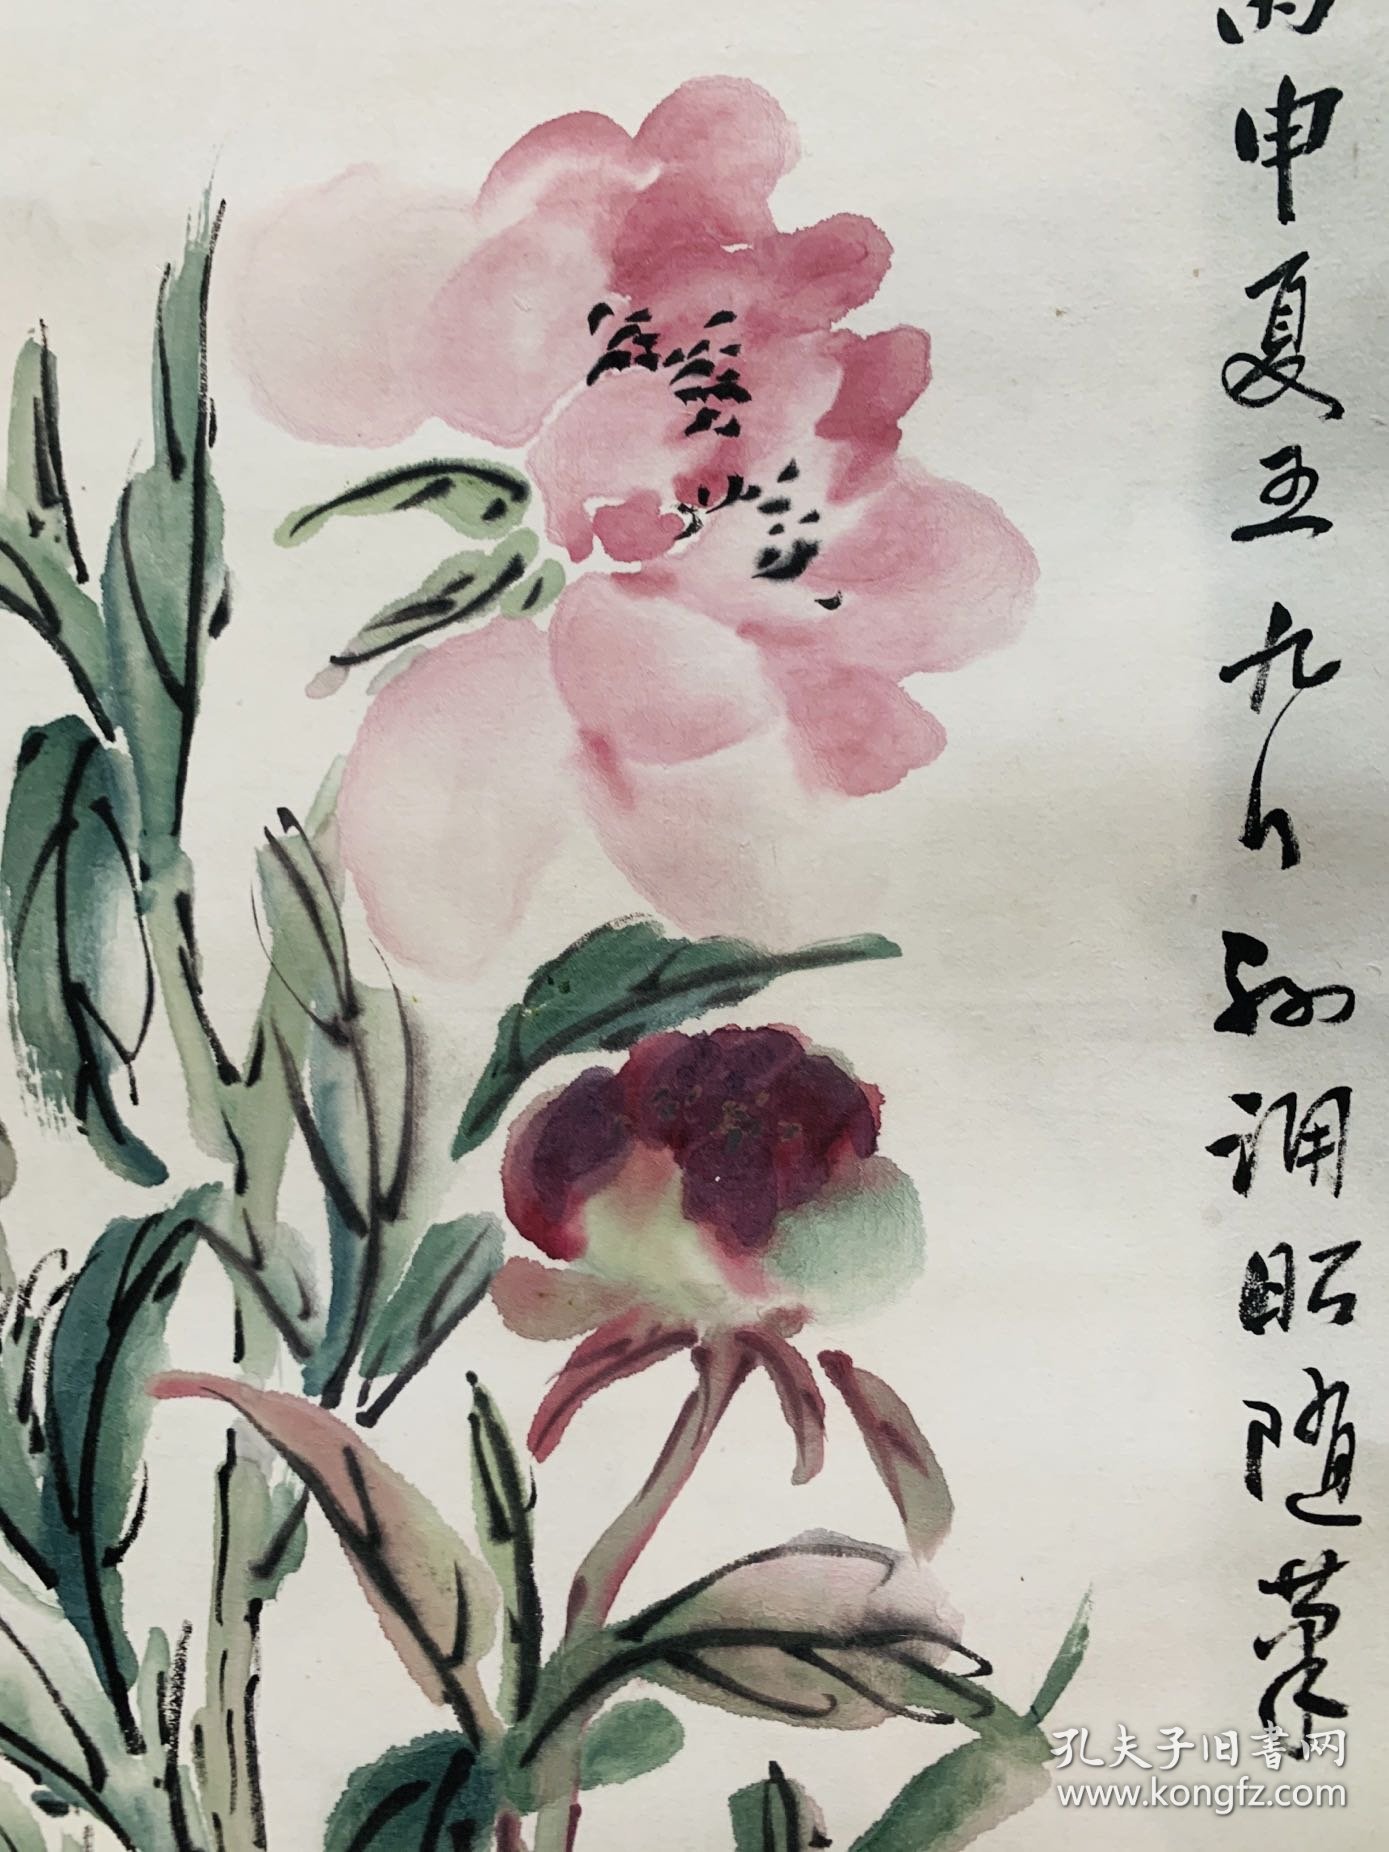 丙申夏五九日孙诵昭随笔
孔夫子旧書网
www.kongfz.com